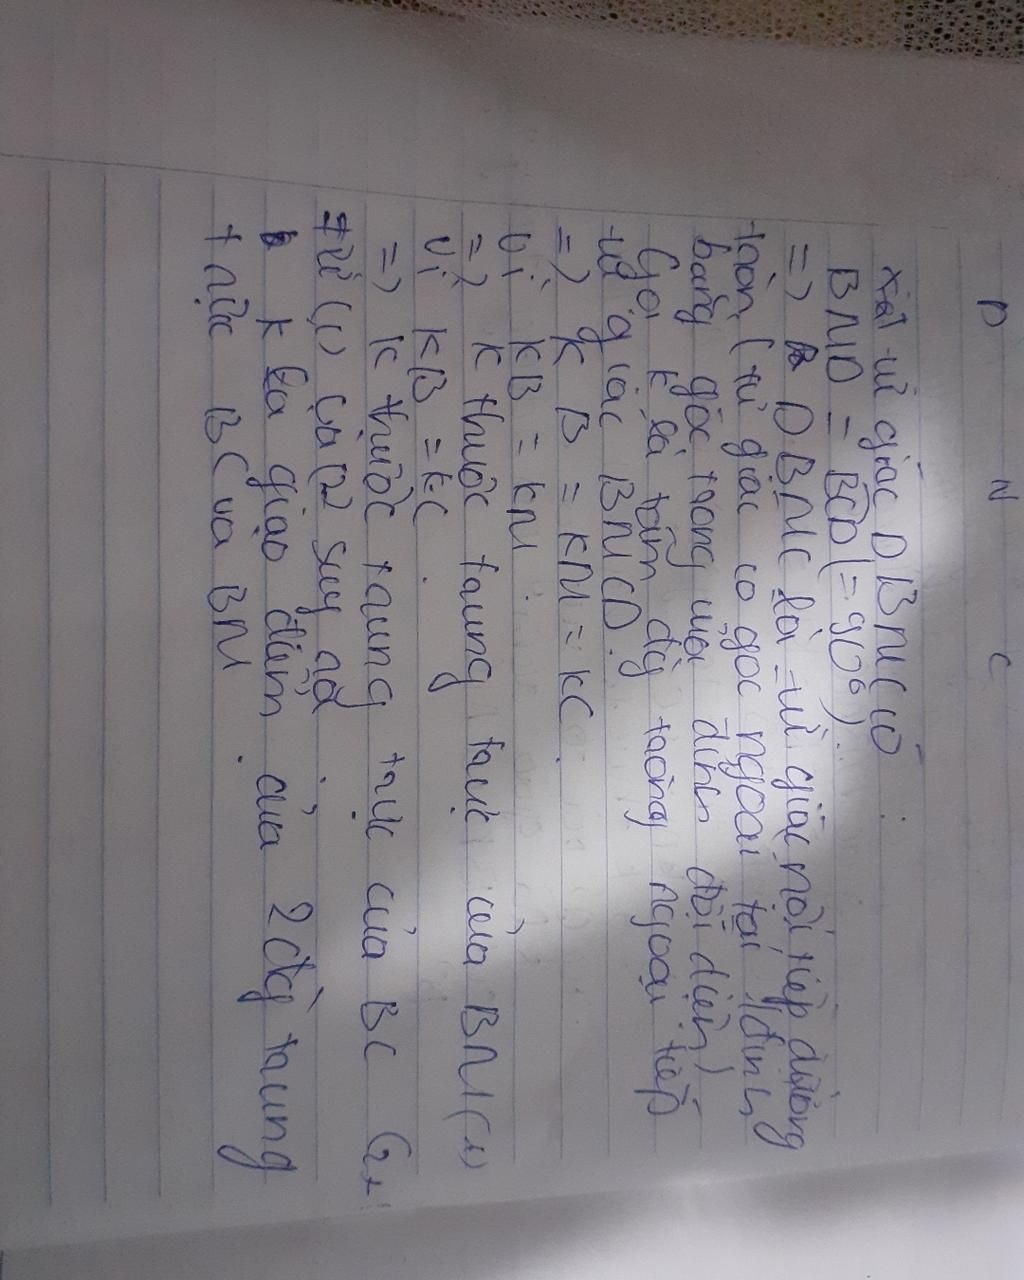 D N C
xét tứ giác DBMC có
BMD = BCD (= 90°)
=> DBMC là tứ giác nội tiếp đường
tròn (tứ giác có góc ngoài tại đỉnh
bằng góc trong của đỉnh đối diện)
Gọi K là tâm đg tròng ngoại tiếp
tứ giác BMCD.
=> KB = KM = KC.
Vì KB = KM
=> K thuộc trung trực của BM (1)
Vì KB = KC.
=> K thuộc trung trực của BC (2)
Từ (1) và (2) suy ra
K là giao điểm của 2 đg trung
trực BC và BM.